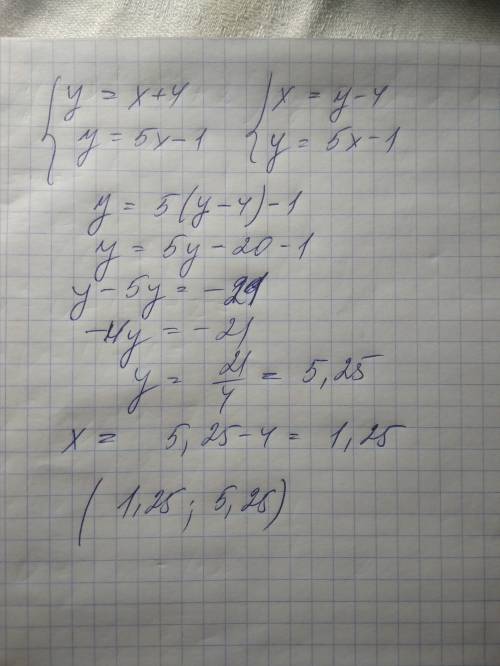 { y = x+4 { x = y-4
y = 5x-1 y = 5x-1
y = 5(y-4)-1
y = 5y-20-1
y-5y = -21
-4y = -21
y = 21/4 = 5,25
x = 5,25-4 = 1,25
(1,25; 5,25)